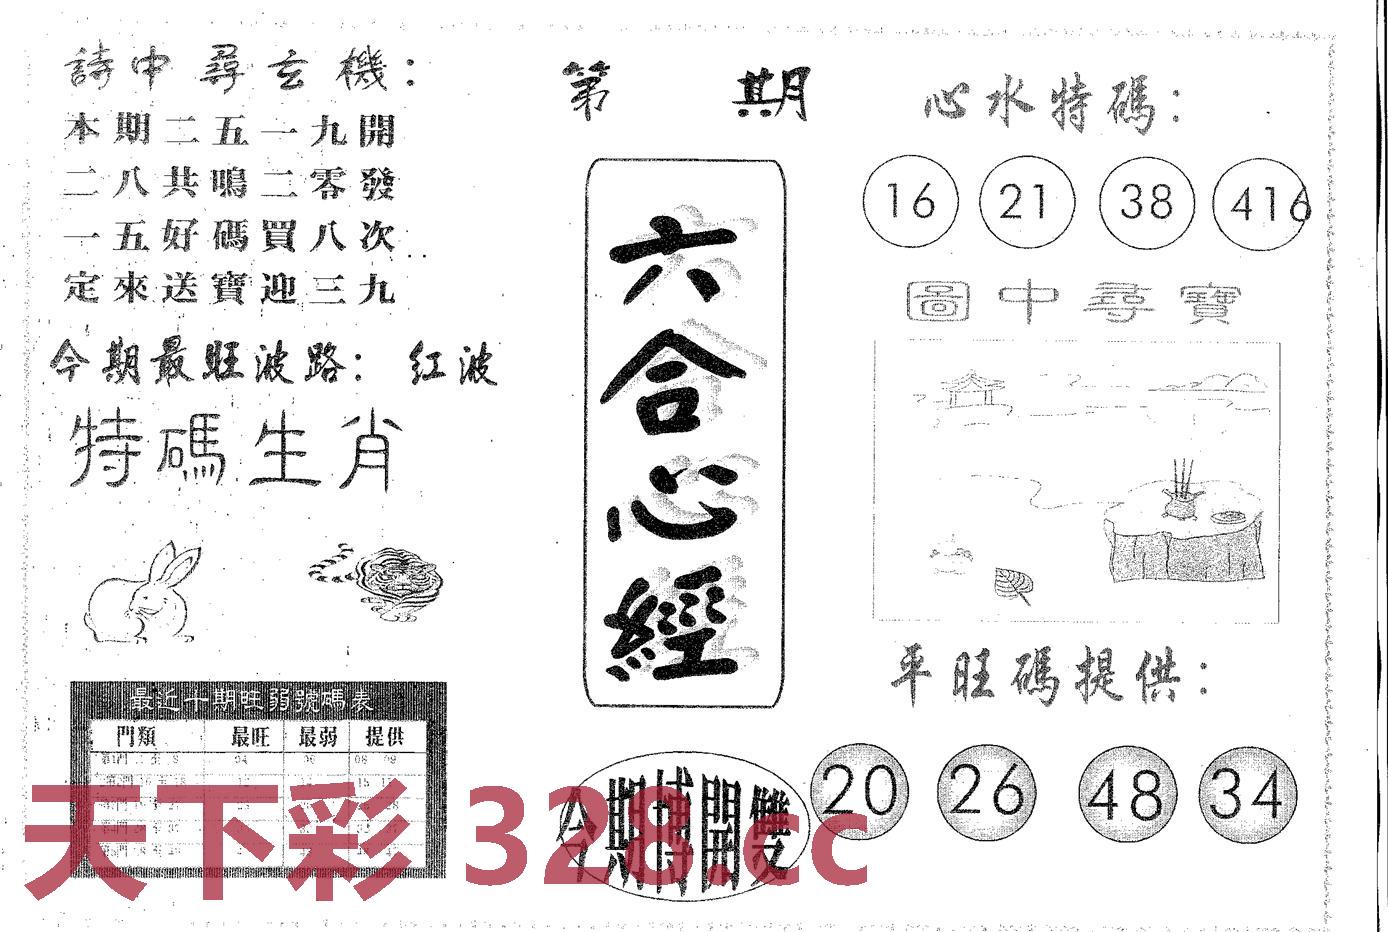 詩中尋玄機：
本期二五一九開
二八共鳴二零發
一五好碼買八次
定來送寶迎三九
今期最旺波路： 红波
特碼生肖
最近十期旺弱號碼表
門類 最旺 最弱 提供
第 期
六合心經
今期博開雙
心水特碼：
16 21 38 416
圖中尋寶
平旺碼提供：
20 26 48 34
天下彩 328.cc